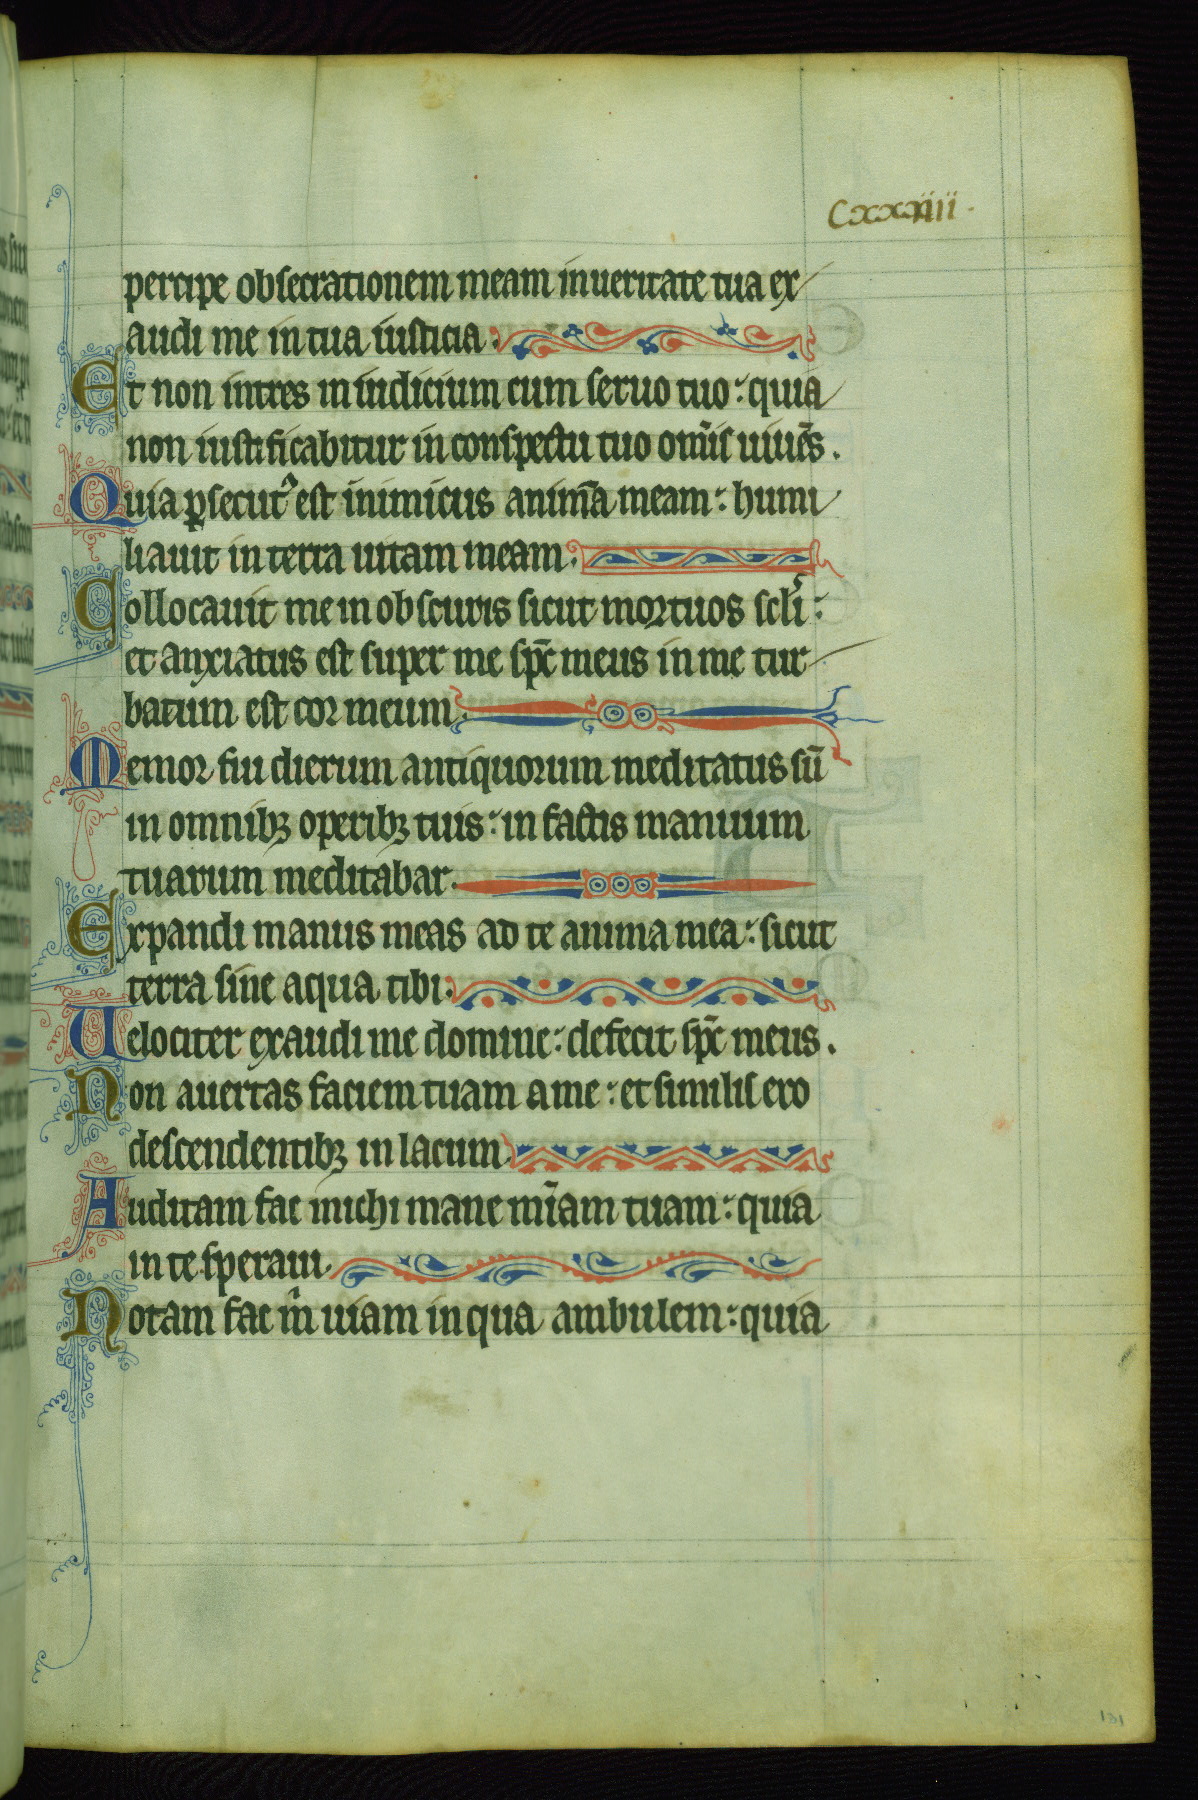 Cxxxxiiii.
percipe obsecrationem meam in ueritate tua ex
audi me in tua iusticia.
Et non intres in iudicium cum seruo tuo: quia
non iustificabitur in conspectu tuo om̄is uiuēs.
Quia ꝑsecut᾿ est inimicus animā meam: humi
liauit in terra uitam meam.
Collocauit me in obscuris sicut mortuos scl̓i:
et anxiatus est super me sp̄c meus in me tur
batum est cor meum.
Memor fui dierum antiquorum meditatus sū
in omnibꝫ operibꝫ tuis: in factis manuum
tuarum meditabar.
Expandi manus meas ad te anima mea: sicut
terra sine aqua tibi.
Uelociter exaudi me domine: defecit sp̄c meus.
Non auertas faciem tuam a me: et similis ero
descendentibꝫ in lacum
Auditam fac michi mane mīam tuam: quia
in te speraui.
Notam fac m̄ uiam in qua ambulem: quia
131